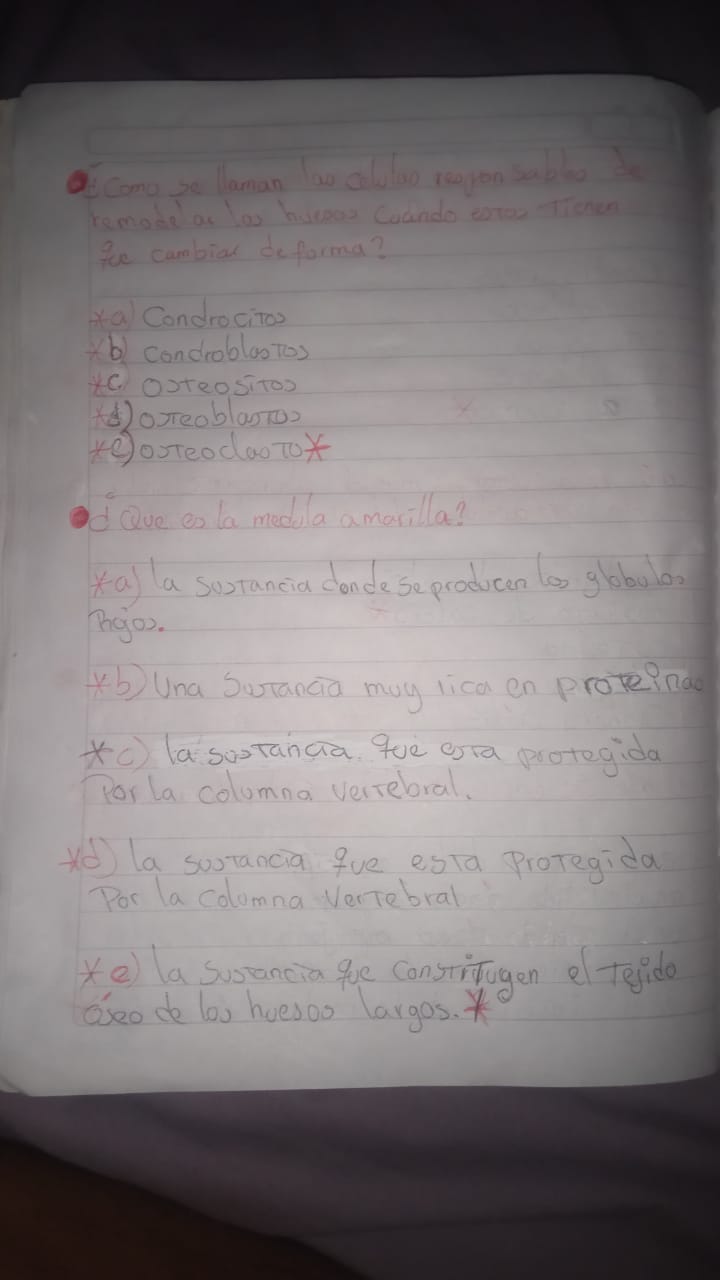 ¿Como se llaman las celulas responsables de
remodelar los huesos cuándo estos Tienen
que cambiar de forma?
*a) CondrociTos
*b) condroblasTos
*c. osTeosíTos
*d) osTeoblasTos
*e) osTeoclasTo*
¿Que es la medula amarilla?
*a) la susTancia donde se producen los globulos
Rojos.
*b) Una SusTancia muy rica en proTeínas
*c) la susTancia que esTa proTegida
Por la columna verTebral.
*d) la susTancia que esTa ProTegida
Por la columna VerTebral
*e) la SusTancia que consTiTuyen el Tejido
óseo de los huesos largos.*